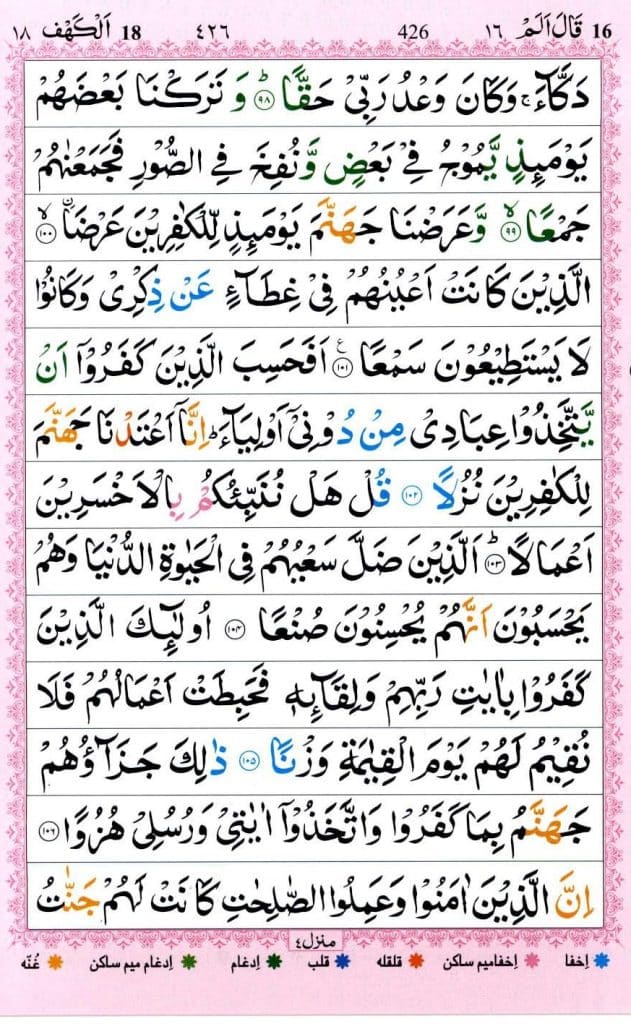 ١٦ قَالَ اَلَمْ 16 426 ٤٢٦ 18 اَلْكَهْف ١٨
دَكَّآءَ ۚ وَكَانَ وَعْدُ رَبِّىْ حَقًّا ؕ‏ ﴿۹۸﴾ وَ تَرَكْنَا بَعْضَهُمْ
يَوْمَئِذٍ يَّمُوْجُ فِىْ بَعْضٍ وَّنُفِخَ فِى الصُّوْرِ فَجَمَعْنٰهُمْ
جَمْعًا ۙ‏ ﴿۹۹﴾ وَّعَرَضْنَا جَهَنَّمَ يَوْمَئِذٍ لِّلْكٰفِرِيْنَ عَرْضَا ۙ‏ ﴿۱۰۰﴾
الَّذِيْنَ كَانَتْ اَعْيُنُهُمْ فِىْ غِطَآءٍ عَنْ ذِكْرِىْ وَكَانُوْا
لَا يَسْتَطِيْعُوْنَ سَمْعًا ﴿۱۰۱﴾ ع اَفَحَسِبَ الَّذِيْنَ كَفَرُوْۤا اَنْ
يَّتَّخِذُوْا عِبَادِىْ مِنْ دُوْنِىْۤ اَوْلِيَآءَ ؕ اِنَّاۤ اَعْتَدْنَا جَهَنَّمَ
لِلْكٰفِرِيْنَ نُزُلًا ﴿۱۰۲﴾ قُلْ هَلْ نُنَبِّئُكُمْ بِالْاَخْسَرِيْنَ
اَعْمَالًا ؕ‏ ﴿۱۰۳﴾ اَلَّذِيْنَ ضَلَّ سَعْيُهُمْ فِى الْحَيٰوةِ الدُّنْيَا وَهُمْ
يَحْسَبُوْنَ اَنَّهُمْ يُحْسِنُوْنَ صُنْعًا ﴿۱۰۴﴾ اُولٰٓئِكَ الَّذِيْنَ
كَفَرُوْا بِاٰيٰتِ رَبِّهِمْ وَلِقَآئِهٖ فَحَبِطَتْ اَعْمَالُهُمْ فَلَا
نُقِيْمُ لَهُمْ يَوْمَ الْقِيٰمَةِ وَزْنًا ﴿۱۰۵﴾ ذٰلِكَ جَزَآؤُهُمْ
جَهَنَّمُ بِمَا كَفَرُوْا وَاتَّخَذُوْۤا اٰيٰتِىْ وَرُسُلِىْ هُزُوًا ﴿۱۰۶﴾
اِنَّ الَّذِيْنَ اٰمَنُوْا وَعَمِلُوا الصّٰلِحٰتِ كَانَتْ لَهُمْ جَنّٰتُ
منزل ٤
اِخفا اِخفامیم ساکن قلقله قلب اِدغام اِدغام میم ساکن غُنّه